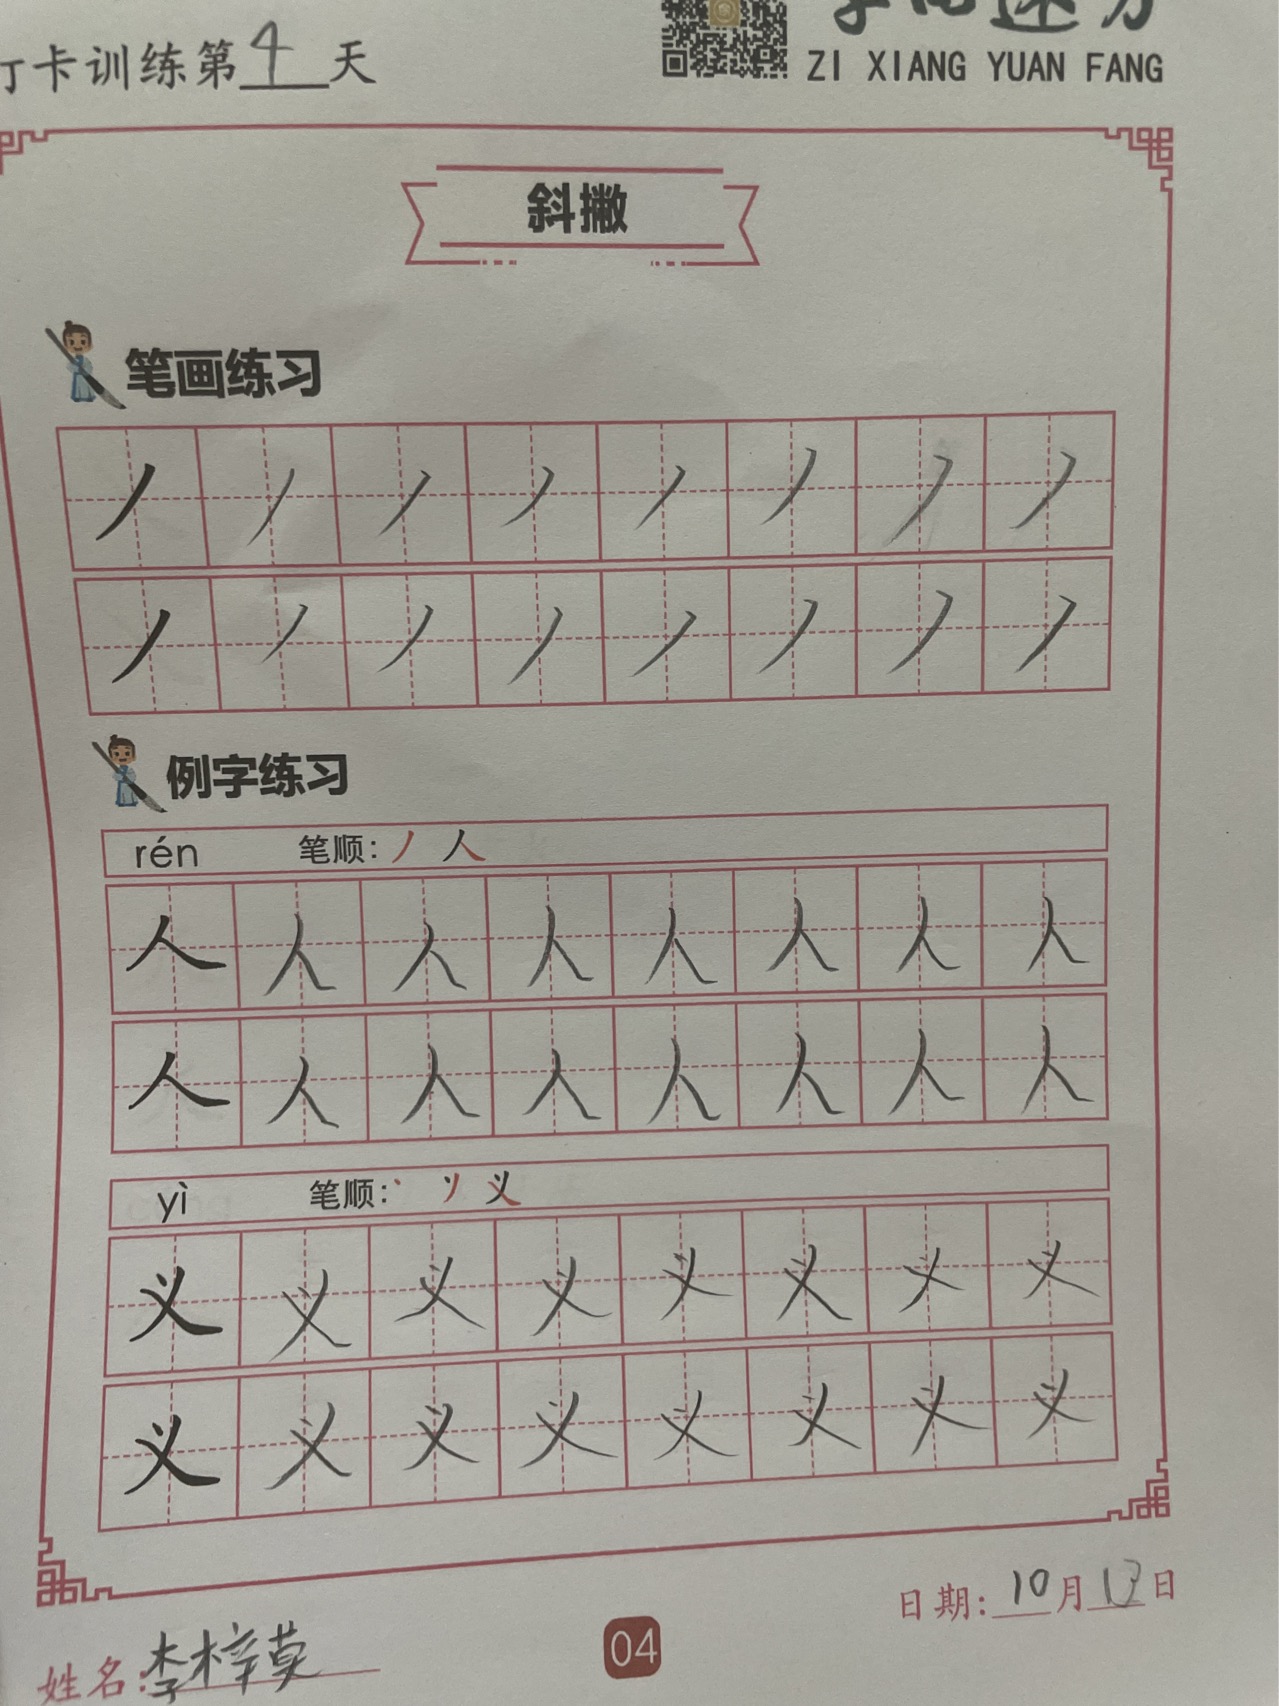 打卡训练第4天
字向远方
ZI XIANG YUAN FANG
斜撇
笔画练习
丿丿丿丿丿丿丿丿
丿丿丿丿丿丿丿丿
例字练习
rén 笔顺:丿 人
人人人人人人人人
人人人人人人人人
yì 笔顺:丶 丷 义
义义义义义义义义
义义义义义义义义
日期:10月13日
姓名:李梓萸
04